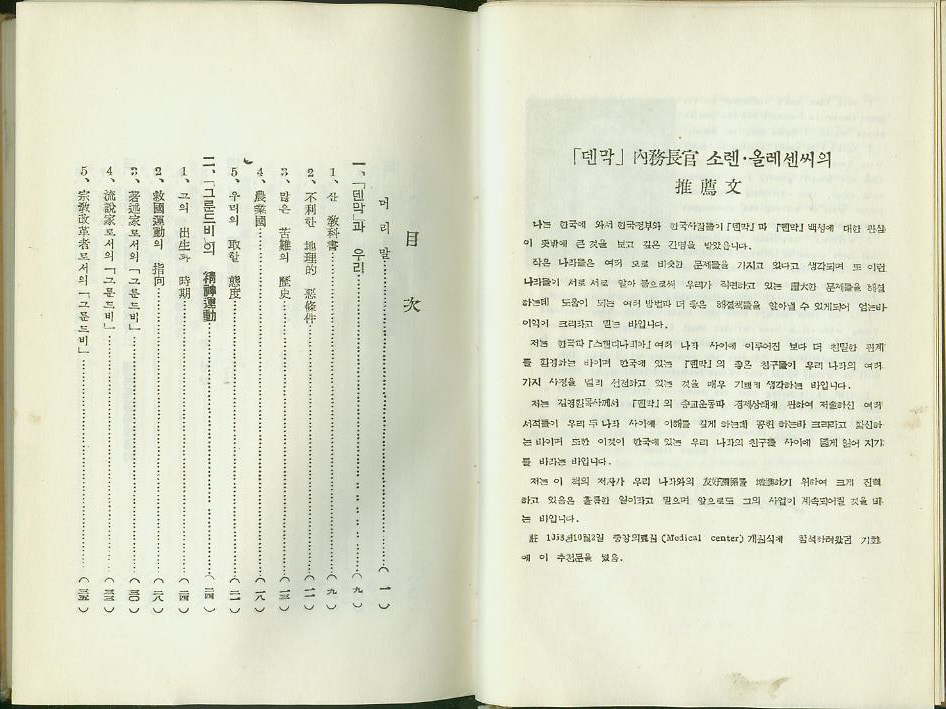 「덴막」 內務長官 소렌·올레센씨의
推薦文
나는 한국에 와서 한국정부와 한국사람들이 『덴막』과 『덴막』 백성에 대한 관심
이 뜻밖에 큰 것을 보고 깊은 감명을 받았읍니다.
작은 나라들은 여러 모로 비슷한 문제들을 가지고 있다고 생각되며 또 이런
나라들이 서로 서로 알아 봄으로써 우리가 직면하고 있는 厖大한 문제들을 해결
하는데 도움이 되는 여러 방법과 더 좋은 해결책들을 알아낼 수 있게되어 얻는바
이익이 크리라고 믿는 바입니다.
저는 한국과 『스캔디나비아』 여러 나라 사이에 이루어진 보다 더 친밀한 관계
를 환영하는 바이며 한국에 있는 『덴막』의 좋은 친구들이 우리 나라의 여러
가지 사정을 널리 선전하고 있는 것을 매우 기쁘게 생각하는 바입니다.
저는 김영환목사께서 『덴막』의 종교운동과 경제상태에 관하여 저술하신 여러
서적들이 우리 두 나라 사이에 이해를 깊게 하는데 공헌 하는바 크리라고 확신하
는 바이며 또한 이것이 한국에 있는 우리 나라의 친구들 사이에 넓게 읽어 지기
를 바라는 바입니다.
저는 이 책의 저자가 우리 나라와의 友好關係를 增進하기 위하여 크게 진력
하고 있음은 훌륭한 일이라고 믿으며 앞으로도 그의 사업이 계속되어질 것을 바
는 바입니다.
註 1958年10月2일 중앙의료원 (Medical center) 개원식에 참석하려왔던 기회
에 이 추천문을 썼음.
目次
머리말 (一)
一、「덴막」과 우리 (九)
1、산 敎科書 (九)
2、不利한 地理的 惡條件 (一一)
3、많은 苦難의 歷史 (一三)
4、農業國 (一八)
5、우리의 取할 態度 (二一)
二、「그룬드비」의 精神運動 (二四)
1、그의 出生과 時期 (二四)
2、救國運動의 指向 (二八)
3、著述家로서의「그룬드비」 (三〇)
4、流說家로서의「그룬드비」 (三三)
5、宗敎改革者로서의「그룬드비」 (三五)